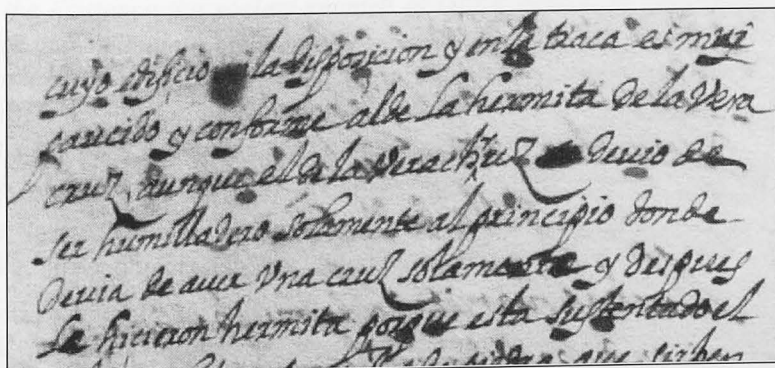 cuyo edificio la disposicion y en la traca es muy
parecido y conforme al de la hermita de la Vera
cruz, aunque el de la Vera chruz devio de
ser humilladero solamente al principio donde
devia de aver una cruz solamente y despues
le hicieron hermita porque esta sustentado el
piedra que sirban